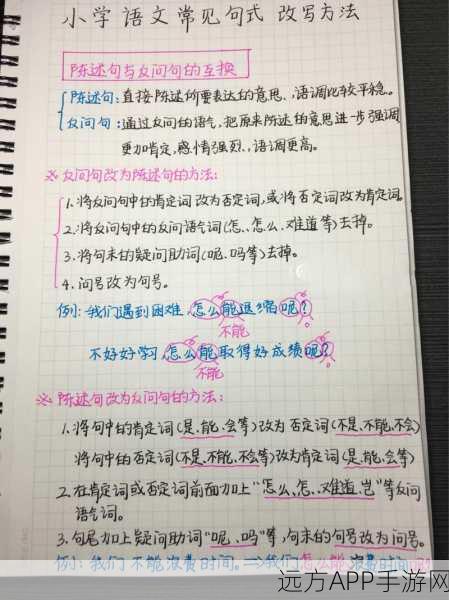 小学语文常见句式 改写方法
陈述句与反问句的互换
陈述句:直接陈述所要表达的意思,语调比较平稳。
反问句:通过反问的语气,把原来陈述的意思进一步强调
更加肯定,感情强烈,语调更高。
※ 反问句改为陈述句的方法:
1.将反问句中的肯定词改为否定词,或将否定词改为肯定词
2.将反问句中的反问语气词(怎、怎么、难道等)去掉。
3.将句末的疑问助词(呢、吗等)去掉。
4.问号改为句号。
例:我们遇到困难,怎么能退缩呢?
不能
不好好学习,怎么能取得好成绩呢?
不能
※ 陈述句改为反问句的方法:
1.将句中的肯定词(是、能、会等)改为否定词(不是、不能、不会)
将句中的否定词(不是、不能、不会等)改为肯定词(是、能、会等)
2.在肯定词或否定词前面加上"怎么、怎、难道、岂"等反问
语气词。
3.句尾加上疑问助词"呢、吗"等,句末的句号改为问号。
例:我们不能浪费时间。⇒我们怎么能浪费时间呢?
远方APP手游网